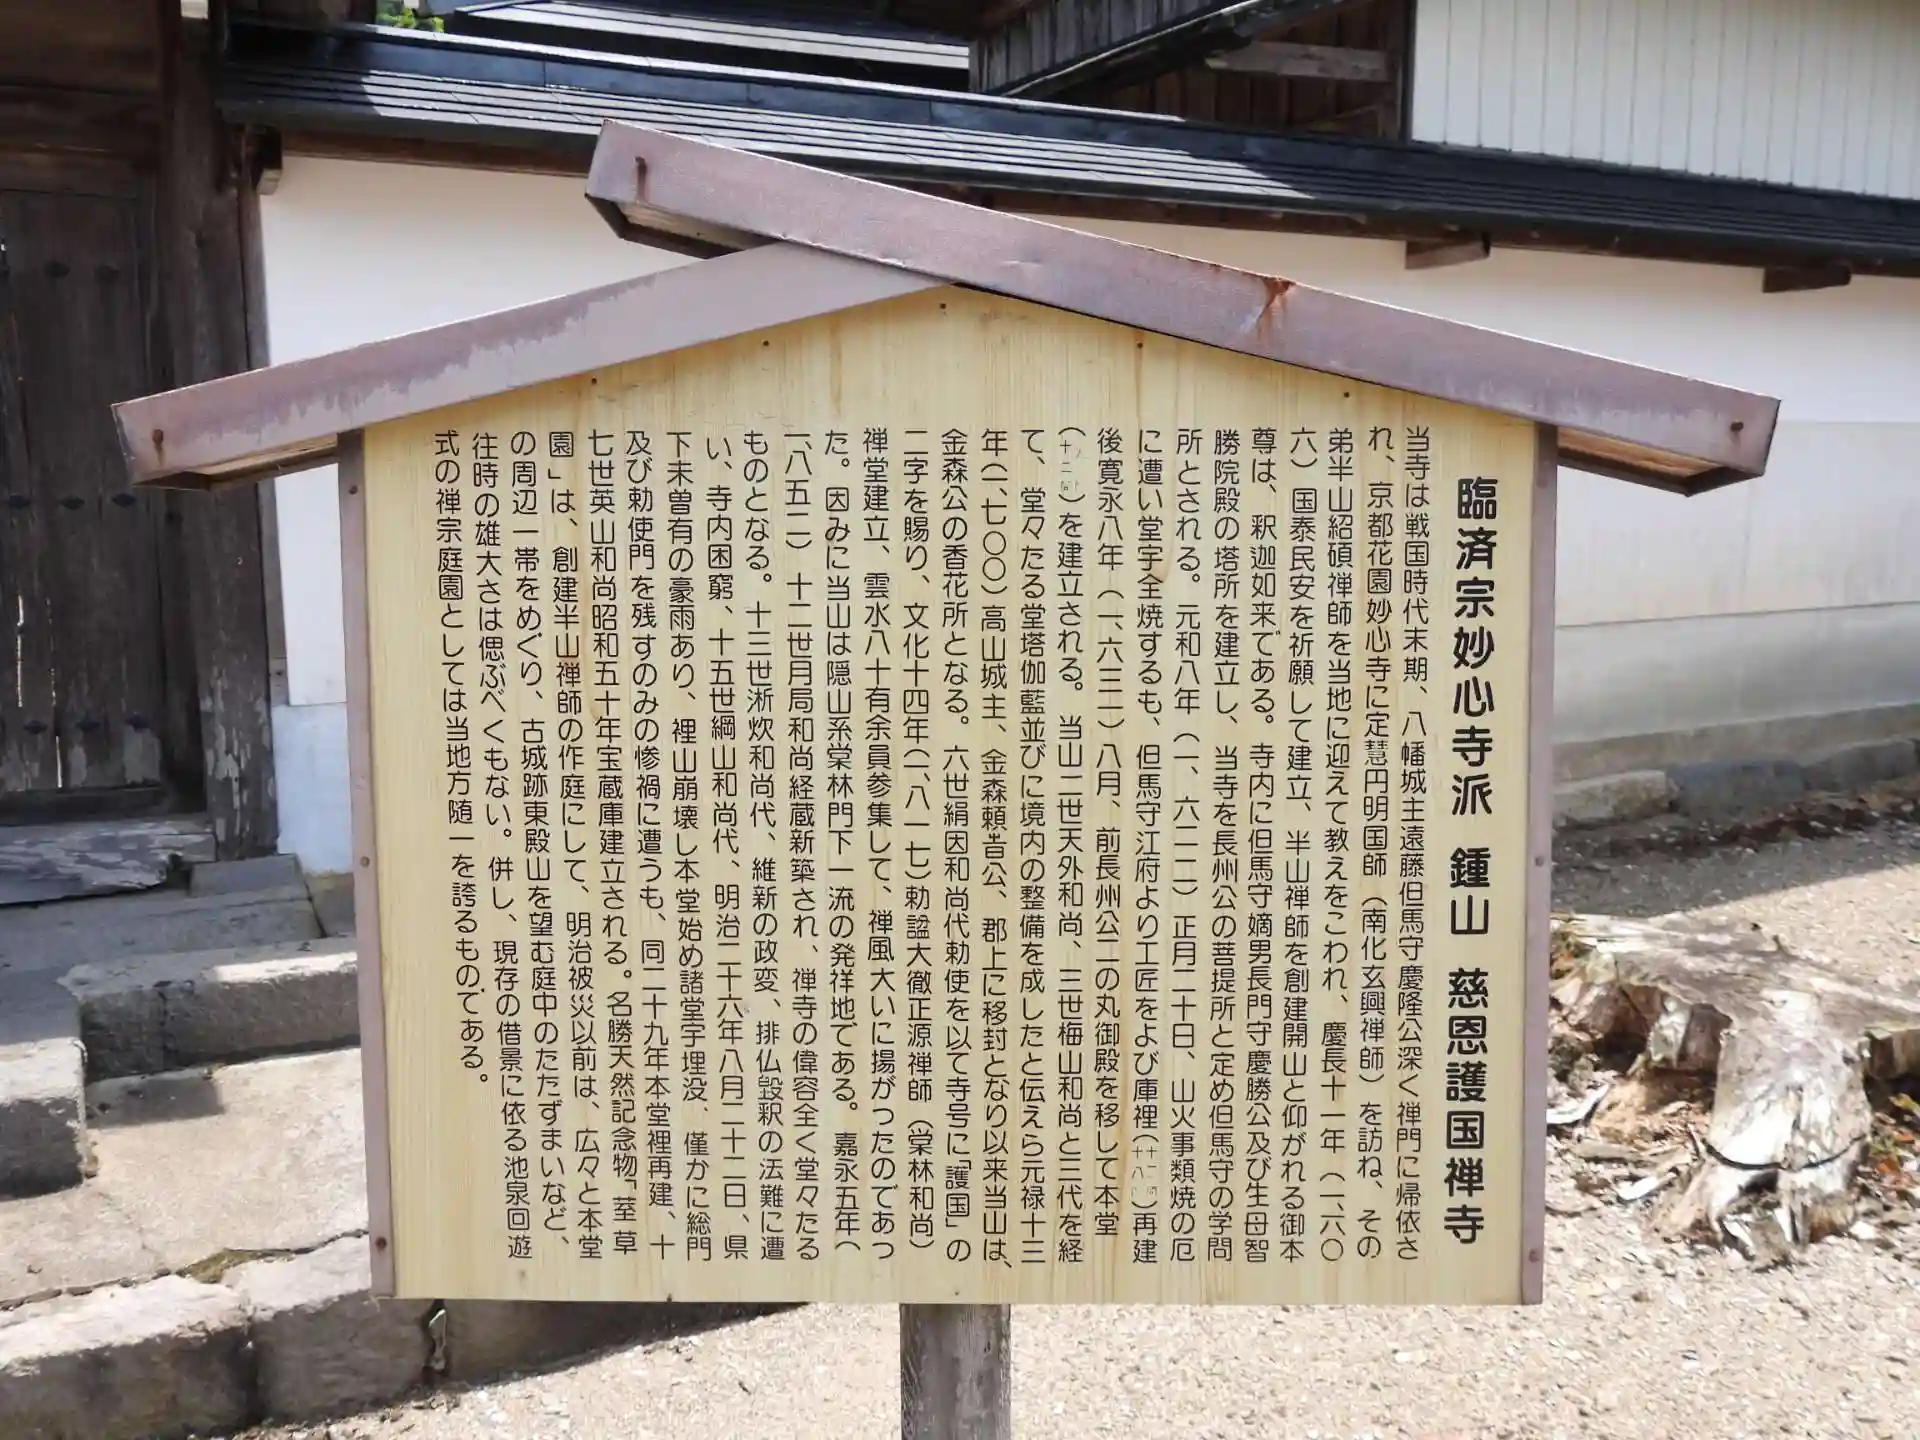 臨済宗妙心寺派 鍾山 慈恩護国禅寺
当寺は戦国時代末期、八幡城主遠藤但馬守慶隆公深く禅門に帰依さ
れ、京都花園妙心寺に定慧円明国師（南化玄興禅師）を訪ね、その
弟半山紹碩禅師を当地に迎えて教えをこわれ、慶長十一年（一、六〇
六）国泰民安を祈願して建立、半山禅師を創建開山と仰がれる御本
尊は、釈迦如来である。寺内に但馬守嫡男長門守慶勝公及び生母智
勝院殿の塔所を建立し、当寺を長州公の菩提所と定め但馬守の学問
所とされる。元和八年（一、六二二）正月二十日、山火事類焼の厄
に遭い堂宇全焼するも、但馬守江府より工匠をよび庫裡（）再建
後寛永八年（一、六三一）八月、前長州公二の丸御殿を移して本堂
（）を建立される。当山二世天外和尚、三世梅山和尚と三代を経
て、堂々たる堂塔伽藍並びに境内の整備を成したと伝えら元禄十三
年（一、七〇〇）高山城主、金森頼旹公、郡上に移封となり以来当山は、
金森公の香花所となる。六世絹因和尚代勅使を以て寺号に「護国」の
二字を賜り、文化十四年（一、八一七）勅諡大徹正源禅師（棠林和尚）
禅堂建立、雲水八十有余員参集して、禅風大いに揚がったのであっ
た。因みに当山は隠山系棠林門下一流の発祥地である。嘉永五年（
一、八五二）十二世月局和尚経蔵新築され、禅寺の偉容全く堂々たる
ものとなる。十三世淅炊和尚代、維新の政変、排仏毀釈の法難に遭
い、寺内困窮、十五世綱山和尚代、明治二十六年八月二十二日、県
下未曽有の豪雨あり、裡山崩壊し本堂始め諸堂宇埋没、僅かに総門
及び勅使門を残すのみの惨禍に遭うも、同二十九年本堂裡再建、十
七世英山和尚昭和五十年宝蔵庫建立される。名勝天然記念物「荎草
園」は、創建半山禅師の作庭にして、明治被災以前は、広々と本堂
の周辺一帯をめぐり、古城跡東殿山を望む庭中のたたずまいなど、
往時の雄大さは偲ぶべくもない。併し、現存の借景に依る池泉回遊
式の禅宗庭園としては当地方随一を誇るものである。